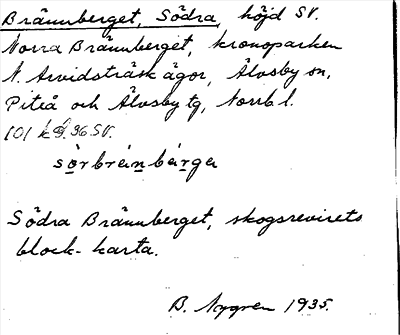 Brännberget, Södra, höjd SV.
Norra Brännberget, kronoparken
N. Arvidsträsk ägor, Älvsby sn,
Piteå och Älvsby tg, Norrb l.
101 36 SV.
sörbränbärga
Södra Brännberget, skogsrevirets
block-karta.
B. Nygren 1935.